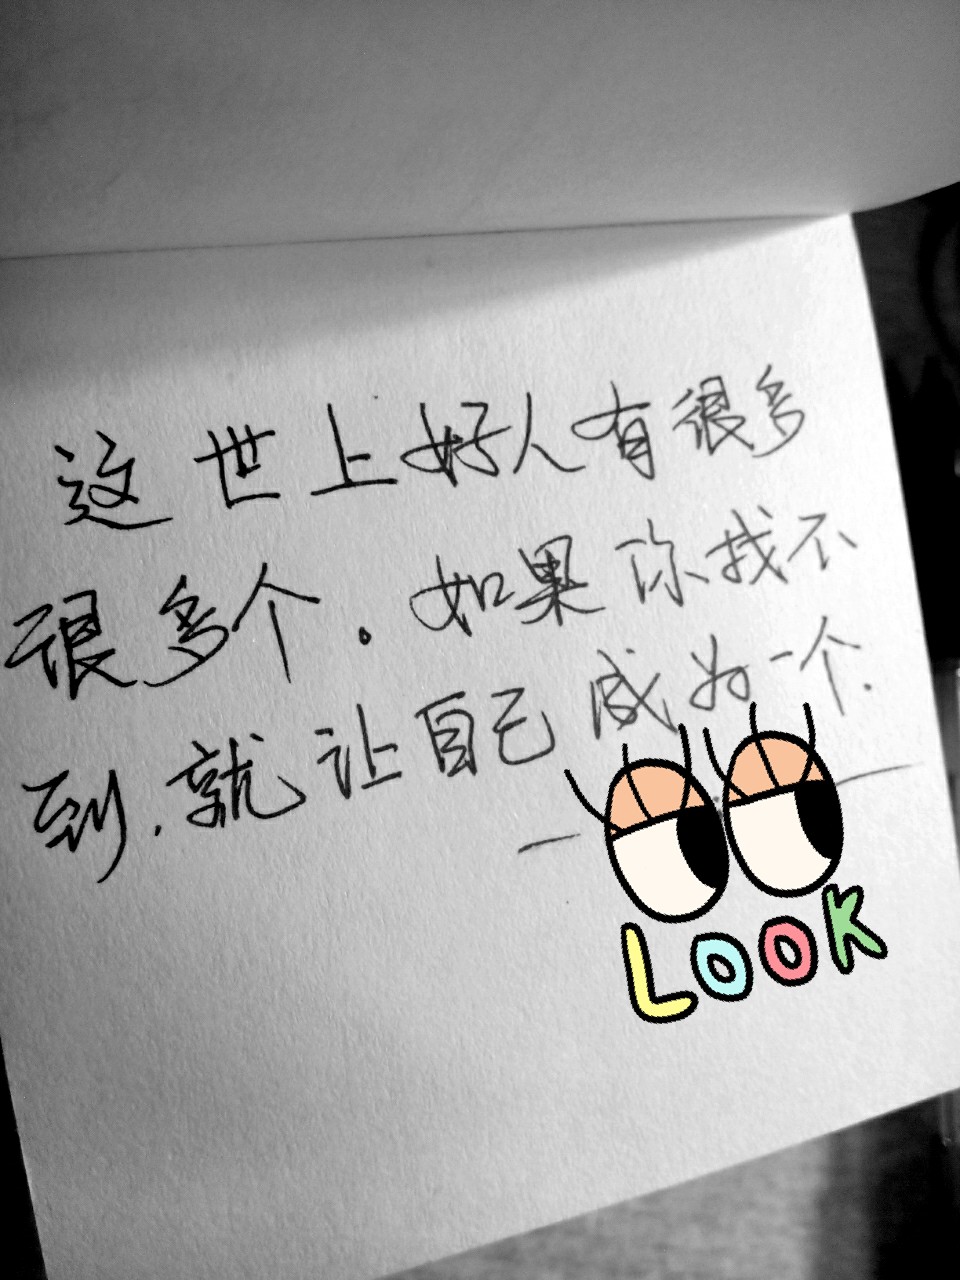 这世上好人有很多
很多个.如果你找不
到.就让自己成为一个.
LOOK